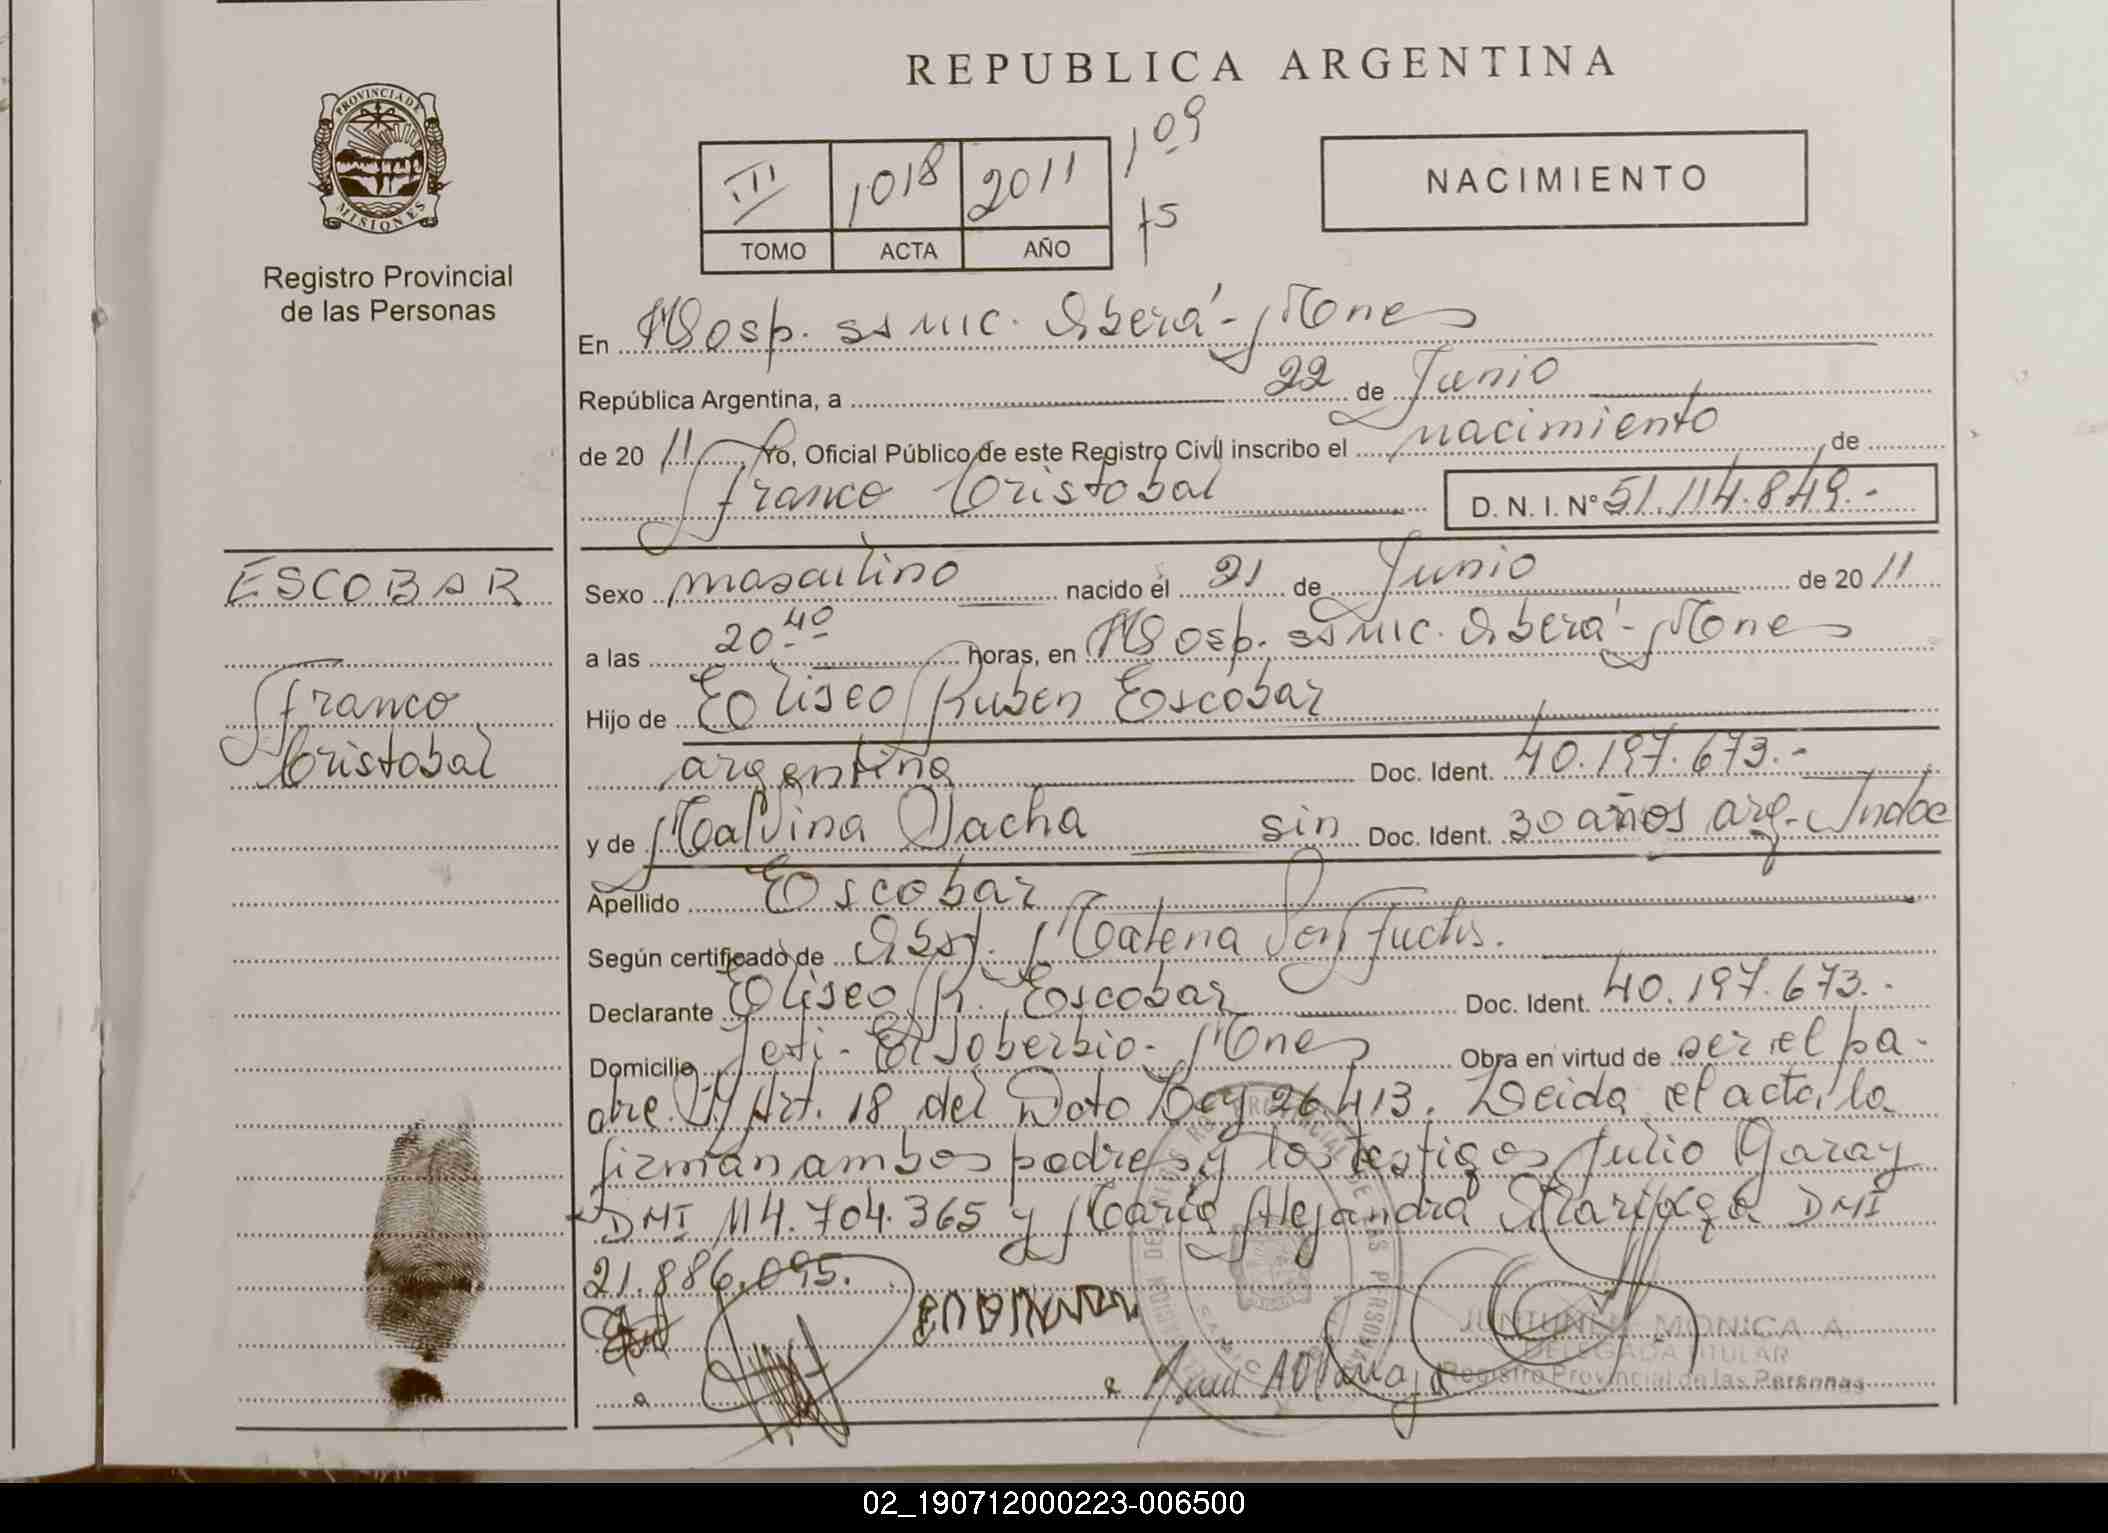 REPUBLICA ARGENTINA
PROVINCIA DE
MISIONES
Registro Provincial
de las Personas
III 1018 2011 109
TOMO ACTA AÑO 75
NACIMIENTO
En Hosp. ssmic. Oberá - Mnes
República Argentina, a 22 de Junio
de 2011 Yo, Oficial Público de este Registro Civil inscribo el nacimiento, de
Franco Cristobal D. N. I. Nº 51.114.849.-
ESCOBAR
Franco
Cristobal
Sexo masculino nacido el 21 de Junio de 2011
a las 20 40 horas, en Hosp. ssmic. Oberá - Mnes
Hijo de Eliseo Ruben Escobar
argentino Doc. Ident. 40.197.673.-
y de Malvina Dacha sin Doc. Ident. 30 años arg. Indoc
Apellido Escobar
Según certificado de Obst. Malena
Declarante Eliseo R. Escobar Doc. Ident. 40.197.673.-
Domicilio - El Soberbio - Mnes Obra en virtud de ser el pa-
dre. Art. 18 del Dcto Ley 26413. Leida el acta, la
firman ambos padres y los testigos Julio Garay
DNI 114.704.365 y Maria Alejandra DNI
21.886.095.
MONICA A.
DELEGADA TITULAR
Registro Provincial de las Personas
02_190712000223-006500